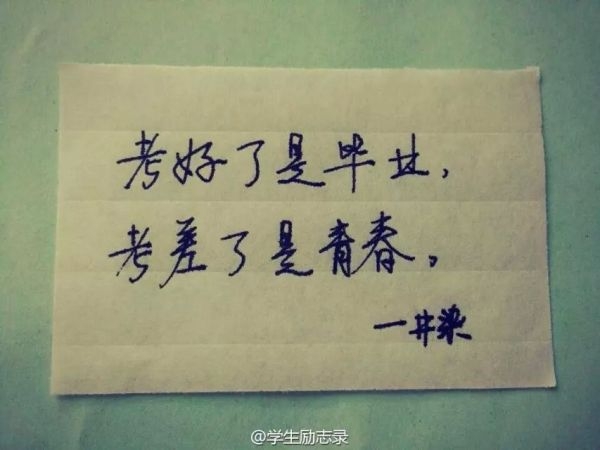 考好了是毕业,
考差了是青春。
一井染
@学生励志录